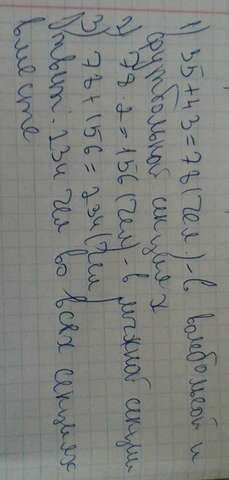 1) 35+43=78 (чел.)-в волебольсой и
футбольной акциях
2) 78 2=156 (чел)-в лыжной секции
3) 78+156=234 (чел
Ответ: 234 чел во всех секциях
вместе